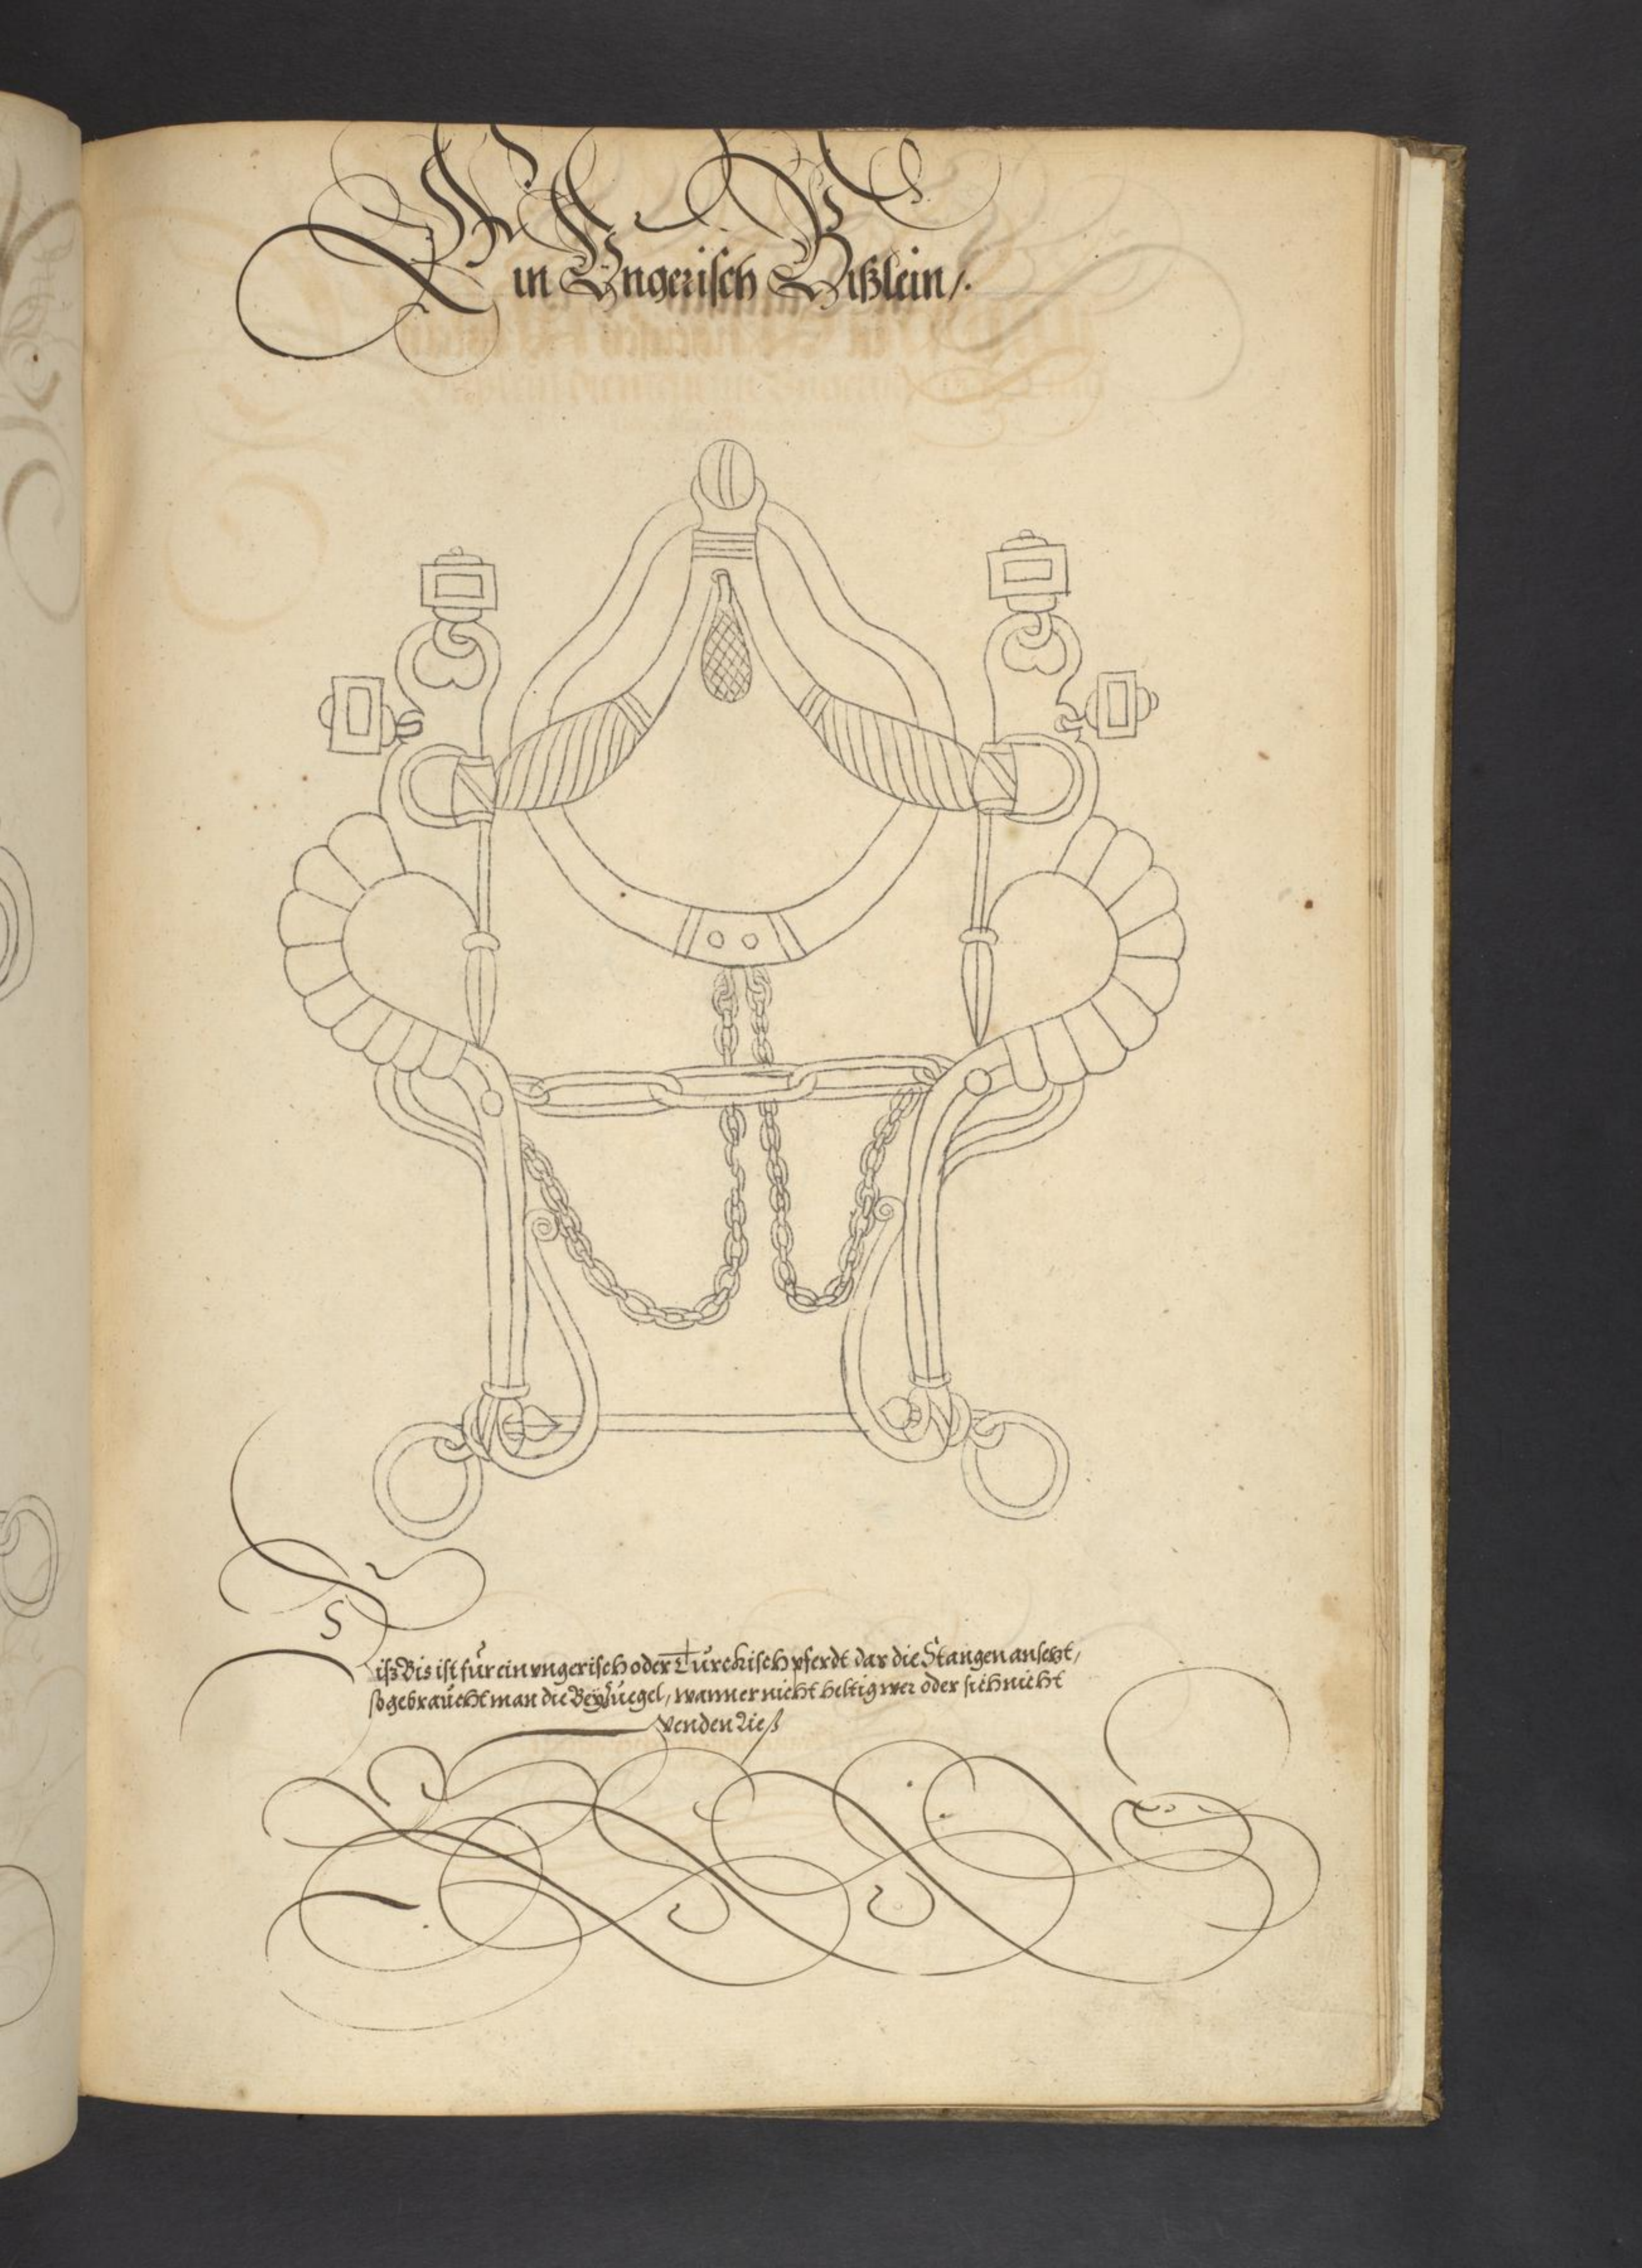 Ein Vngerisch Bißlein/.
Diß Bis ist für ein vngerisch oder Türckisch pferdt dar die Stangen ansetzt,
so gebraucht man die Beyzuegel, wann er nicht heltig wer oder sich nicht
wenden ließ